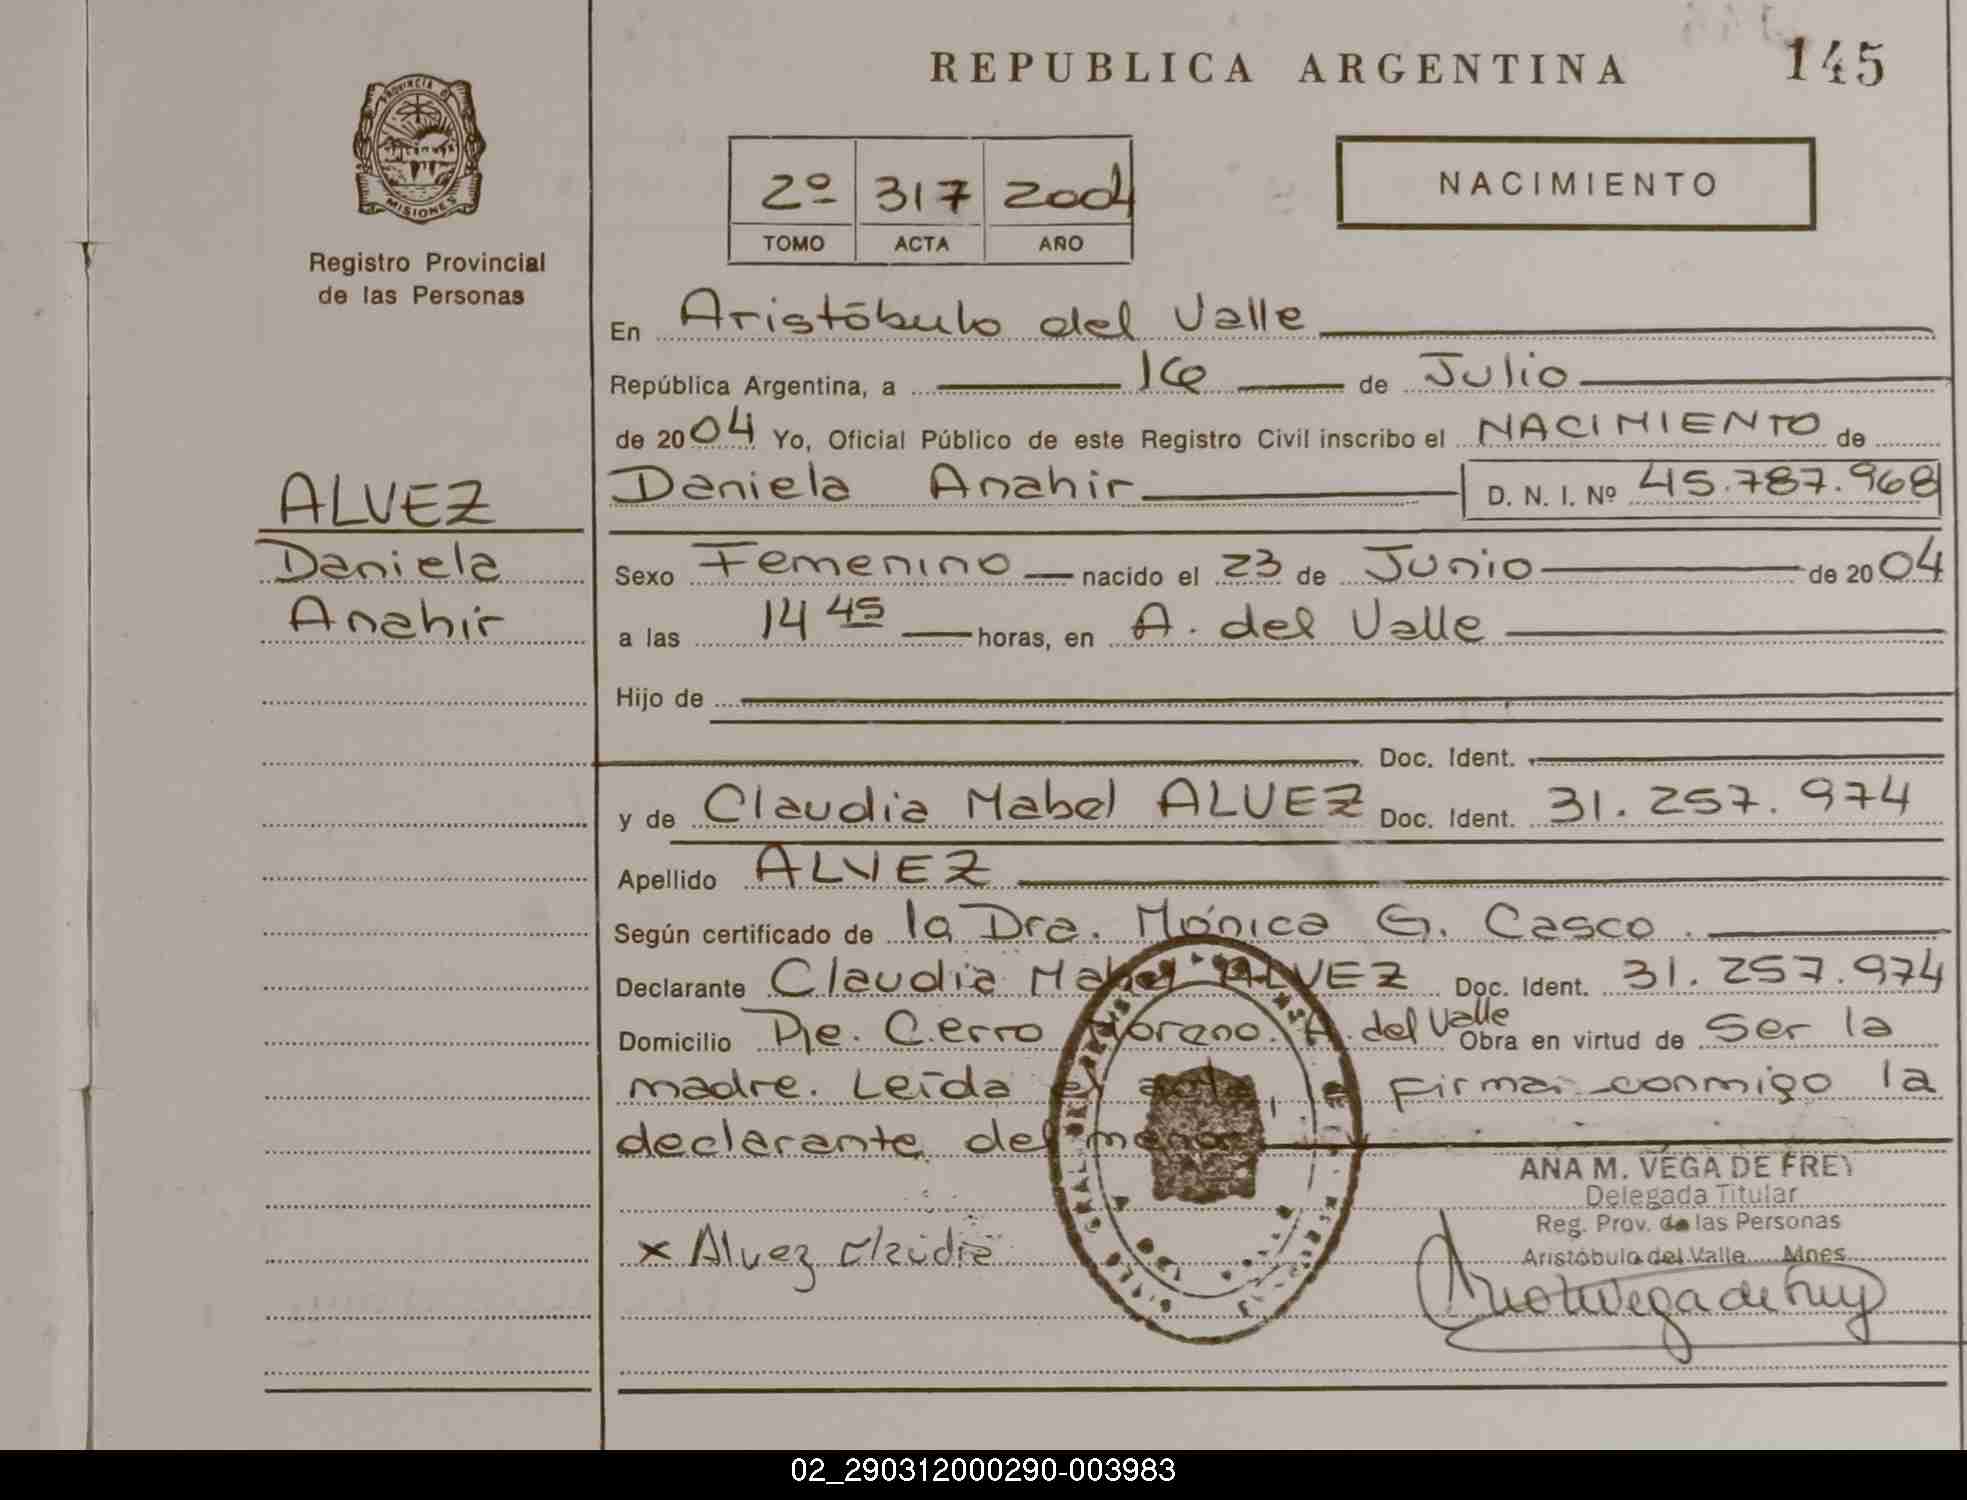 REPUBLICA ARGENTINA 145
PROVINCIA DE
MISIONES
Registro Provincial
de las Personas
2º 317 2004
TOMO ACTA AÑO
NACIMIENTO
En Aristóbulo del Valle
República Argentina, a 16 de Julio
de 2004 Yo, Oficial Público de este Registro Civil inscribo el NACIMIENTO de
Daniela Anahir D. N. I. Nº 45.787.968
ALVEZ
Daniela
Anahir
Sexo Femenino nacido el 23 de Junio de 2004
a las 14 45 horas, en A. del Valle
Hijo de
Doc. Ident.
y de Claudia Mabel ALVEZ Doc. Ident. 31.257.974
Apellido ALVEZ
Según certificado de la Dra. Mónica G. Casco.
Declarante Claudia Mabel ALVEZ Doc. Ident. 31.257.974
Domicilio Pje. Cerro Moreno. A. del Valle Obra en virtud de Ser la
madre. Leída el acta, la firma conmigo la
declarante del menor
ANA M. VEGA DE FREY
Delegada Titular
Reg. Prov. de las Personas
Aristóbulo del Valle Mnes
x Alvez Claudia
02_290312000290-003983